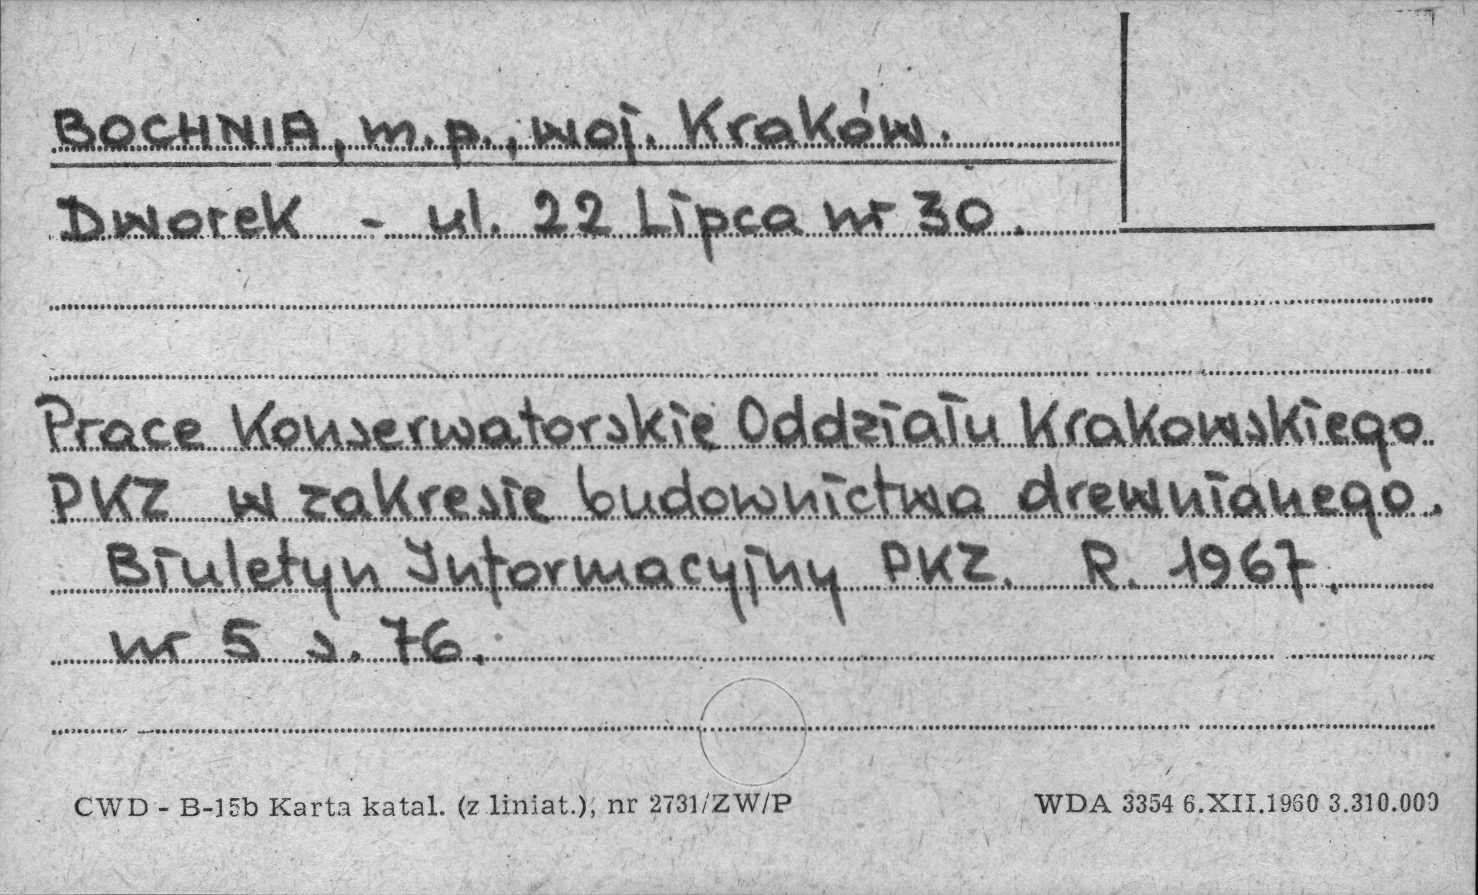 BOCHNIA, m.p., woj. Kraków.
Dworek - ul. 22 Lipca nr 30.
Prace Konserwatorskie Oddziału Krakowskiego
PKZ w zakresie budownictwa drewnianego.
Biuletyn Informacyjny PKZ. R. 1967.
nr 5 s. 76.
CWD - B-15b Karta katal. (z liniat.), nr 2731/ZW/P
WDA 3354 6.XII.1960 3.310.000